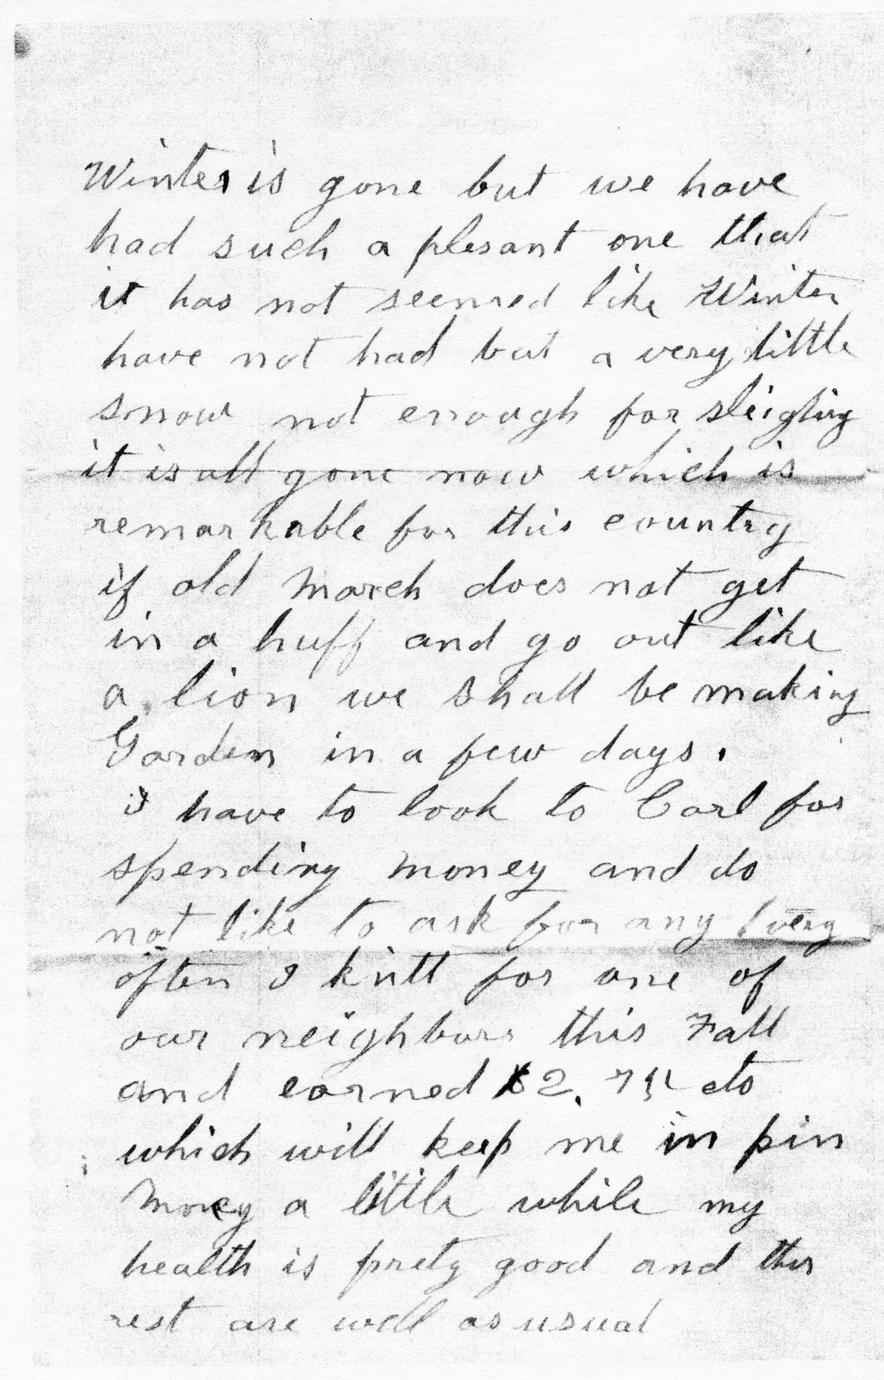 Winter is gone but we have
had such a plesant one that
it has not seemed like Winter
have not had but a very little
snow not enough for sleighing
it is all gone now which is
remarkable for this country
if old March does not get
in a huff and go out like
a lion we shall be making
Garden in a few days.
I have to look to Carl for
spending money and do
not like to ask for any very
often I knitt for one of
our neighbors this Fall
and earned $2. cts
which will keep me in pin
money a little while my
health is prety good and the
rest are well as usual